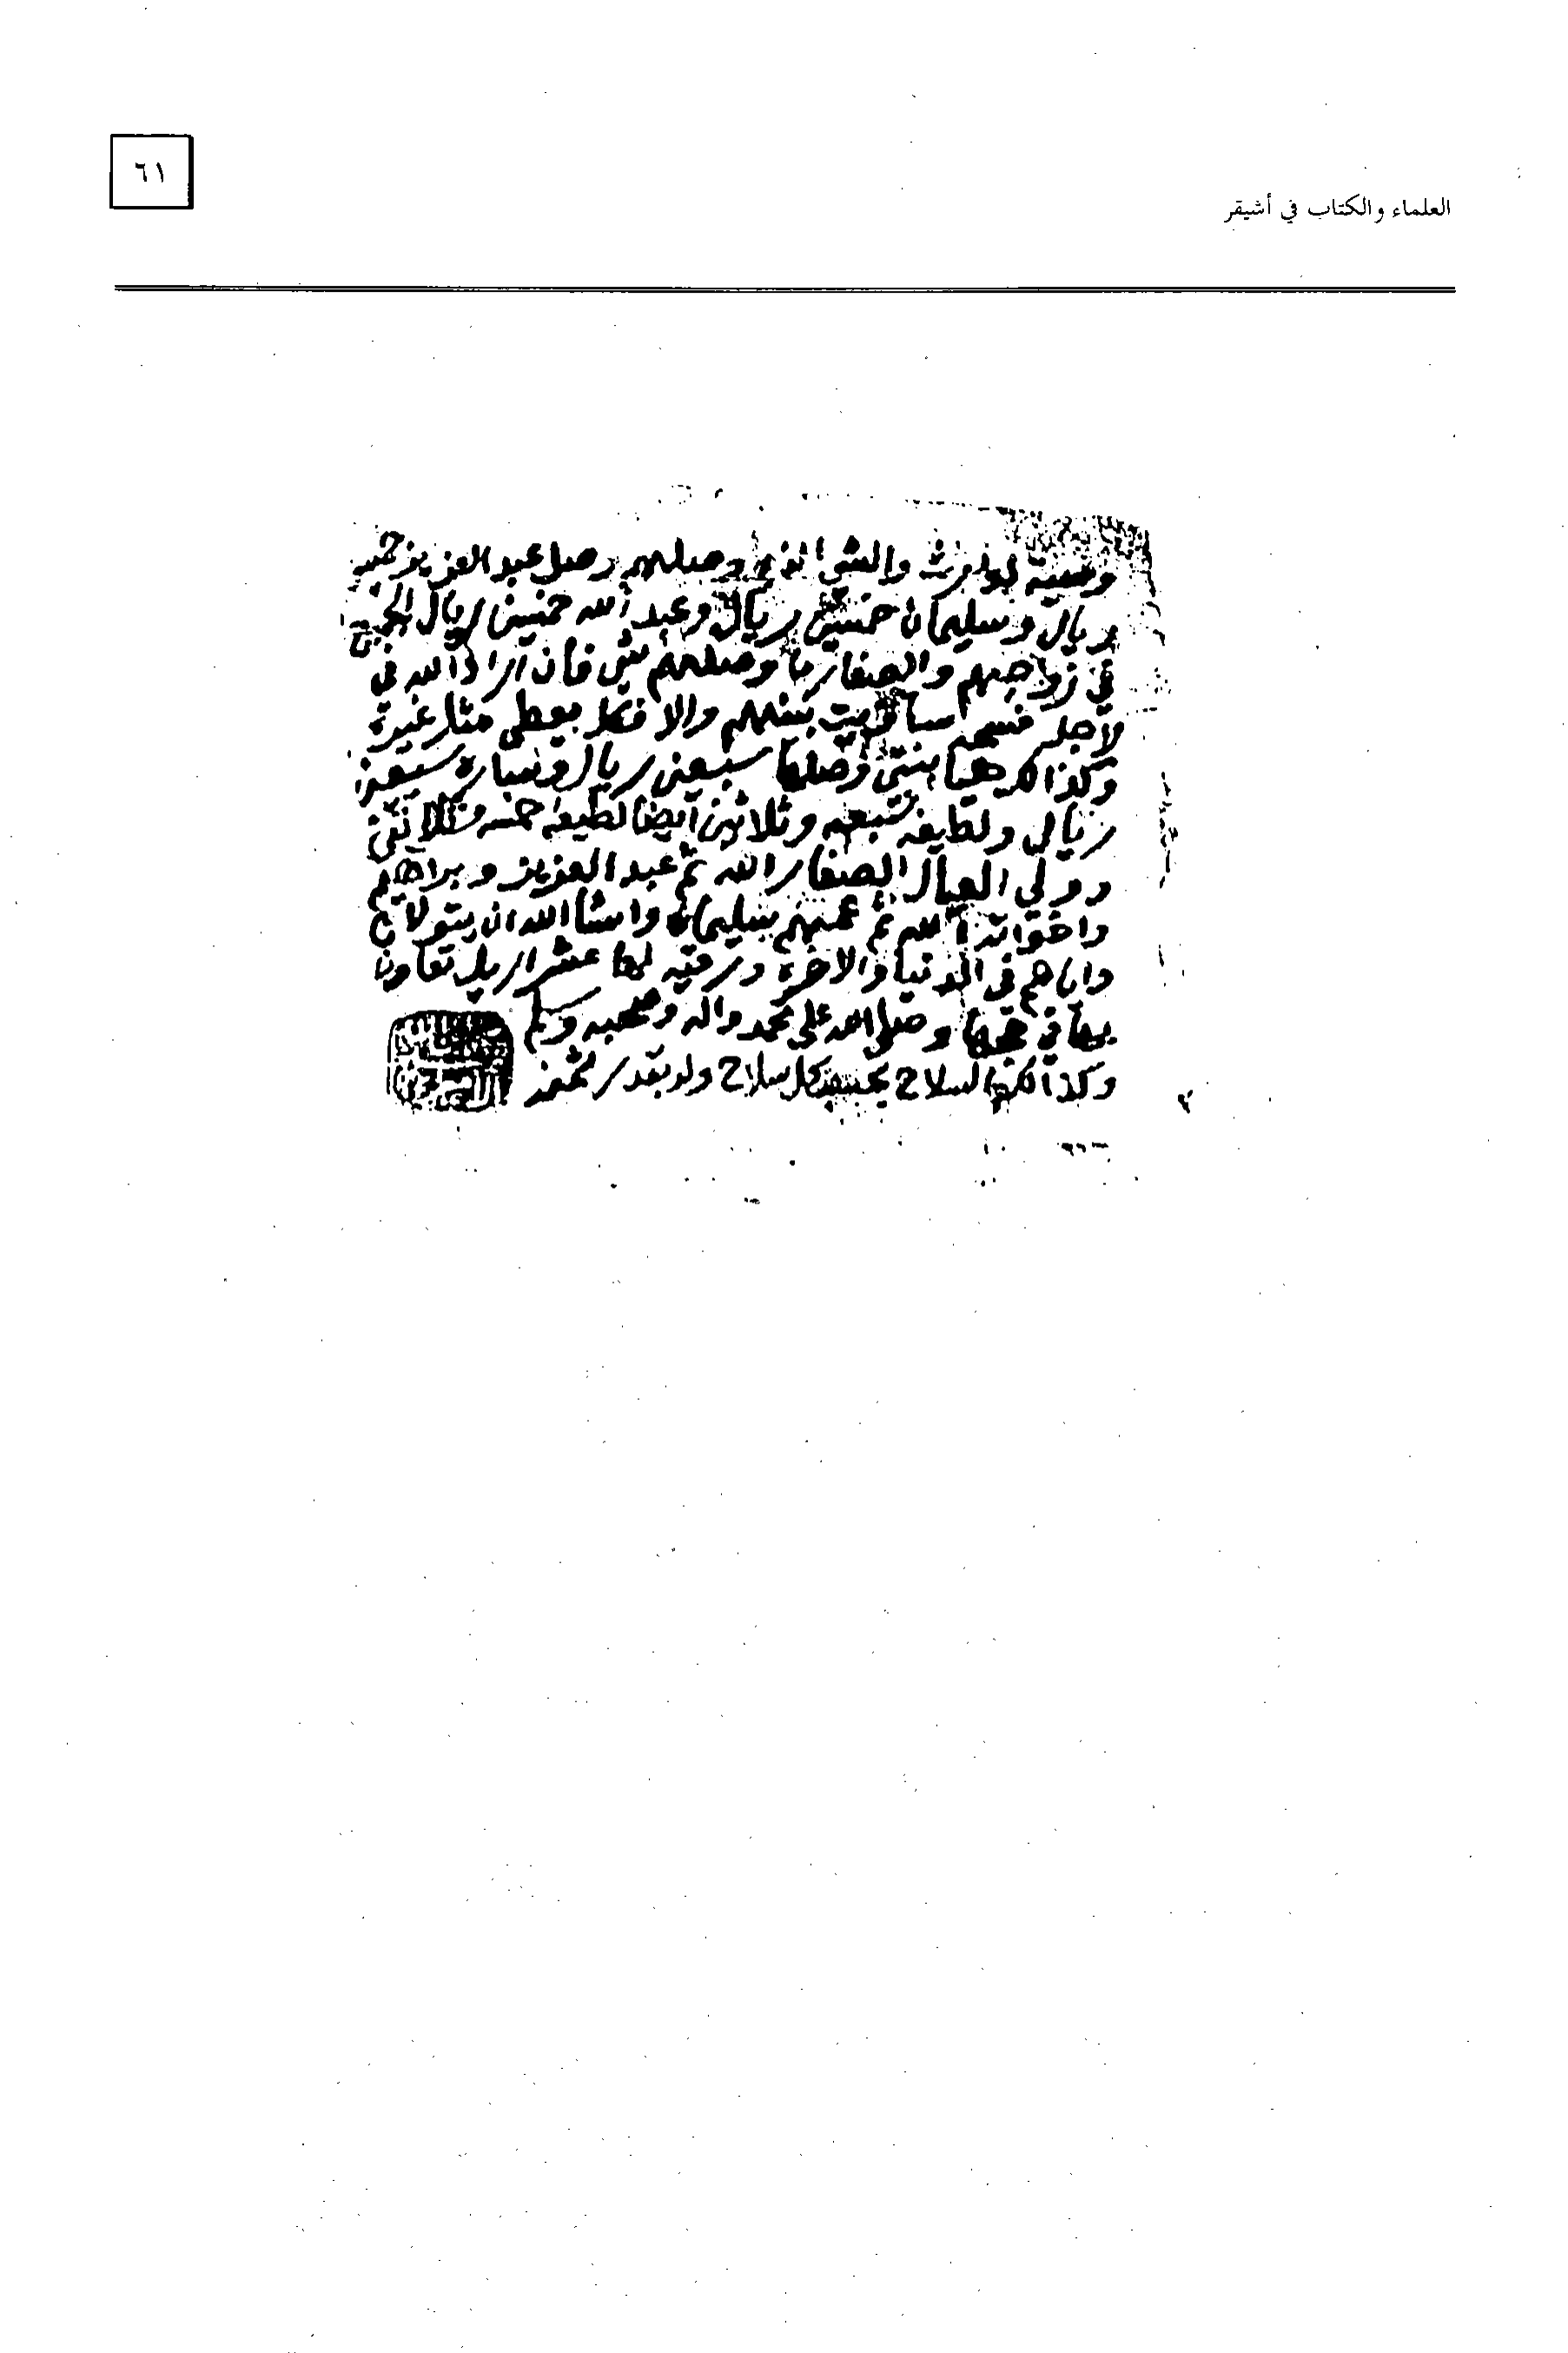 ٦١
العلماء والكتاب في أشيقر
وصية لوارث والشي الذي وصلهم وصل عبد العزيز خمسين
ريال وسليمان خمسين ريال وعبد الله خمسين ريال الجميع
في زواجهم والصغار ما وصلهم شي فان اراد الله في
لاجل قسمة بينهم والا فكل يعطى مثل غيره
وكذالك هيا بنتي وصلها سبعين ريال وساره سبعين
ريال ولطيفه سبعه وثلاثين ايضا لطيفه خمسه وثلاثين
وولي العيال الصغار الله ثم عبد العزيز وبراهيم
واخوانه الله ثم عمهم سليمان وانشا الله ان يتولانا
واياهم في الدنيا والاخره ورقيه لها عشر اريل تعاون
بها في وصلى الله على محمد واله وصحبه وسلم
وكذالك السلاح يحسب كل سلاح ولد بقدر